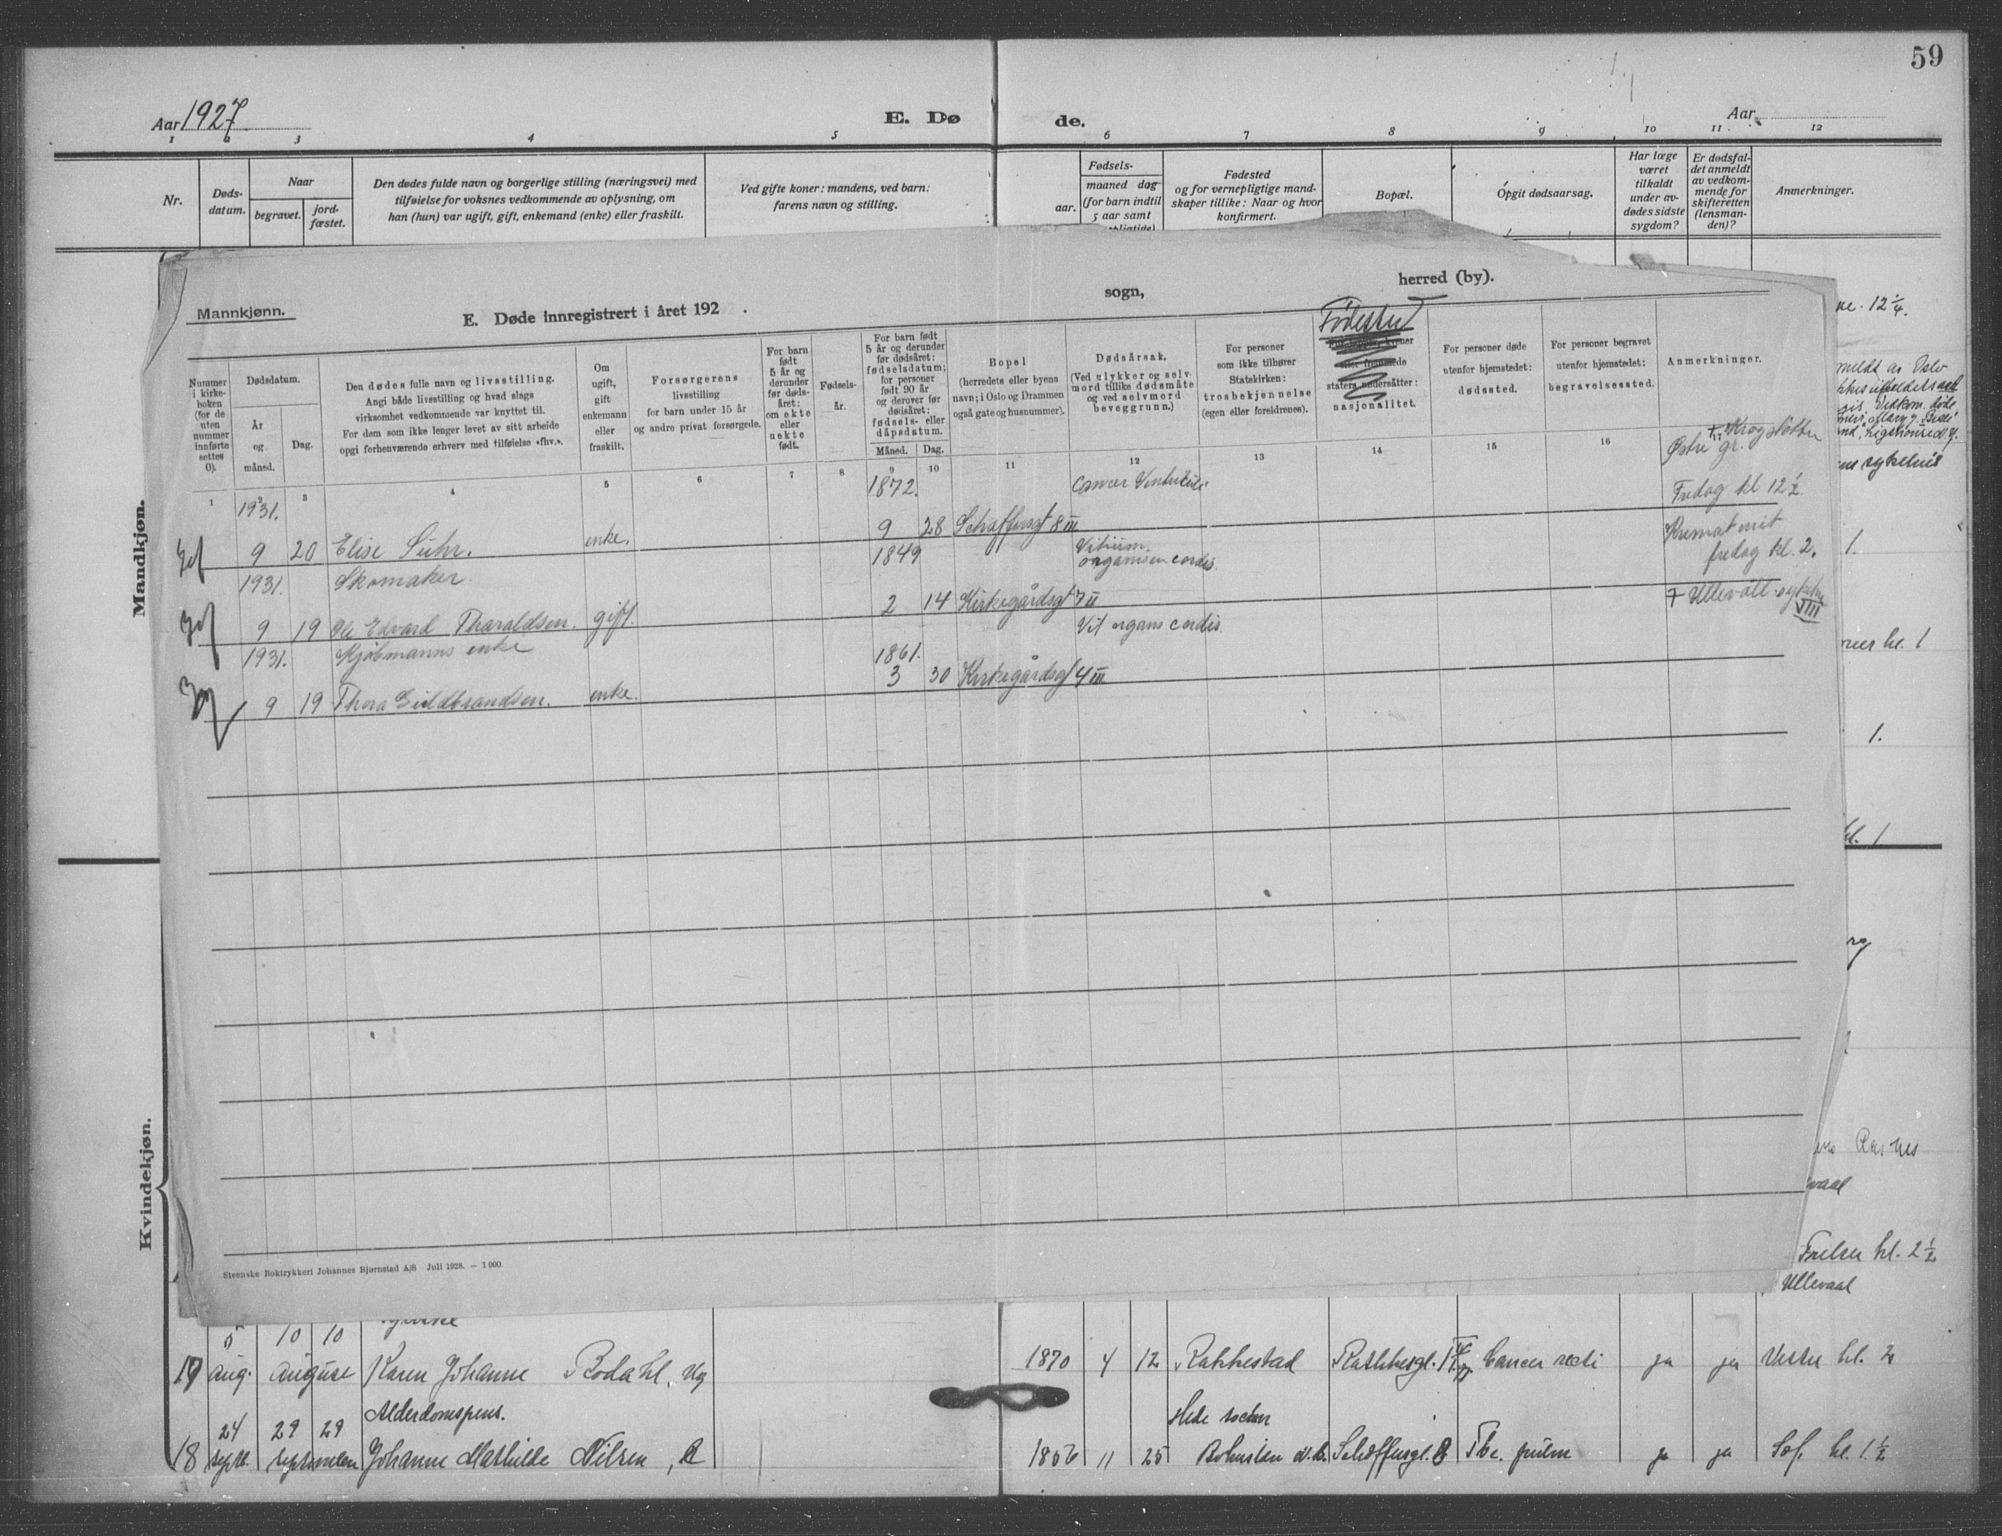 59
Aar 1927
E. Dø de.
Aar
1 2 3 4 5 6 7 8 9 10 11 12
Nr.
Dødsdatum.
Naar
begravet.
jordfæstet.
Den dødes fulde navn og borgerlige stilling (næringsvei) med
tilføielse for voksnes vedkommende av oplysning, om
han (hun) var ugift, gift, enkemand (enke) eller fraskilt.
Ved gifte koner: mandens, ved barn:
farens navn og stilling.
Fødsels-
aar.
maaned dag
(for barn indtil
5 aar samt
Fødested
og for vernepligtige mand-
skaper tillike: Naar og hvor
konfirmert.
Bopæl.
Opgit dødsaarsag.
Har læge
været
tilkaldt
under av-
dødes sidste
sygdom?
Er dødsfal-
det anmeldt
av vedkom-
mende for
skifteretten
(lensman-
den)?
Anmerkninger.
Mandkjøn.
Kvindekjøn.
Mannkjønn.
E. Døde innregistrert i året 192 .
sogn,
herred (by).
Nummer
i kirke-
boken
(for de
uten
nummer
innførte
settes
O).
Dødsdatum.
År
og
måned.
Dag.
Den dødes fulle navn og livsstilling.
Angi både livsstilling og hvad slags
virksomhet vedkommende var knyttet til.
For dem som ikke lenger levet av sitt arbeide
opgi forhenværende erhverv med tilføielse «fhv.».
Om
ugift,
gift
enkemann
eller
fraskilt.
Forsørgerens
livsstilling
for barn under 15 år
og andre privat forsørgede.
For barn
født
5 år og
derunder
før døds-
året:
om ekte
eller
uekte
født.
Fødsels-
år.
For barn født
5 år og derunder
før dødsåret:
fødselsdatum;
for personer
født 90 år
og derover før
dødsåret:
fødsels- eller
dåpsdatum.
Måned. Dag.
Bopel
(herredets eller byens
navn; i Oslo og Drammen
også gate og husnummer).
Dødsårsak.
(Ved ulykker og selv-
mord tillike dødsmåte
og ved selvmord
beveggrunn.)
For personer
som ikke tilhører
Statskirken:
trosbekjennelse
(egen eller foreldrenes).
Fødested
nasjonalitet.
For personer døde
utenfor hjemstedet:
dødssted.
For personer begravet
utenfor hjemstedet:
begravelsessted.
Anmerkninger.
1 2 3 4 5 6 7 8 9 10 11 12 13 14 15 16
1931. 1872. Cancer Ventriculi Østre gr. Fredag kl 12 ½
9 20 Elise Suhr. enke. 9 28 Schaffersgt 8 III
1931. Skomaker. 1849 Vitium organicum cordis Krematoriet fredag kl. 2.
9 19 Ole Edvard Tharaldsen. gift. 2 14 Kirkegårdsgt 7 II
1931. Kjøbmanns enke 1861. Vit organ cordis Ullevåll sykehus VIII
9 19 Thora Guldbrandsen. enke. 3 30 Kirkegårdsgt 4 III
Steenske Boktrykkeri Johannes Bjørnstad A/S Juli 1928. – 1 000.
12 ¼.
meldt av Oslo
Vedkom. døde
sykehus
1.
kl. 1
1.
kl. 1
kl. 2 ½
Ullevaal
10 10
17 aug. august Karen Johanne Bodahl, ug 1870 4 12 Rakkestad Cancer recti ja ja Vestre kl. 2
24 29 29 Alderdomspens.
18 septb. september Johanne Mathilde Nilsen, 1856 11 25 Schaffersgt. 8 Tbc. pulm ja ja Sof. kl. 1 ½